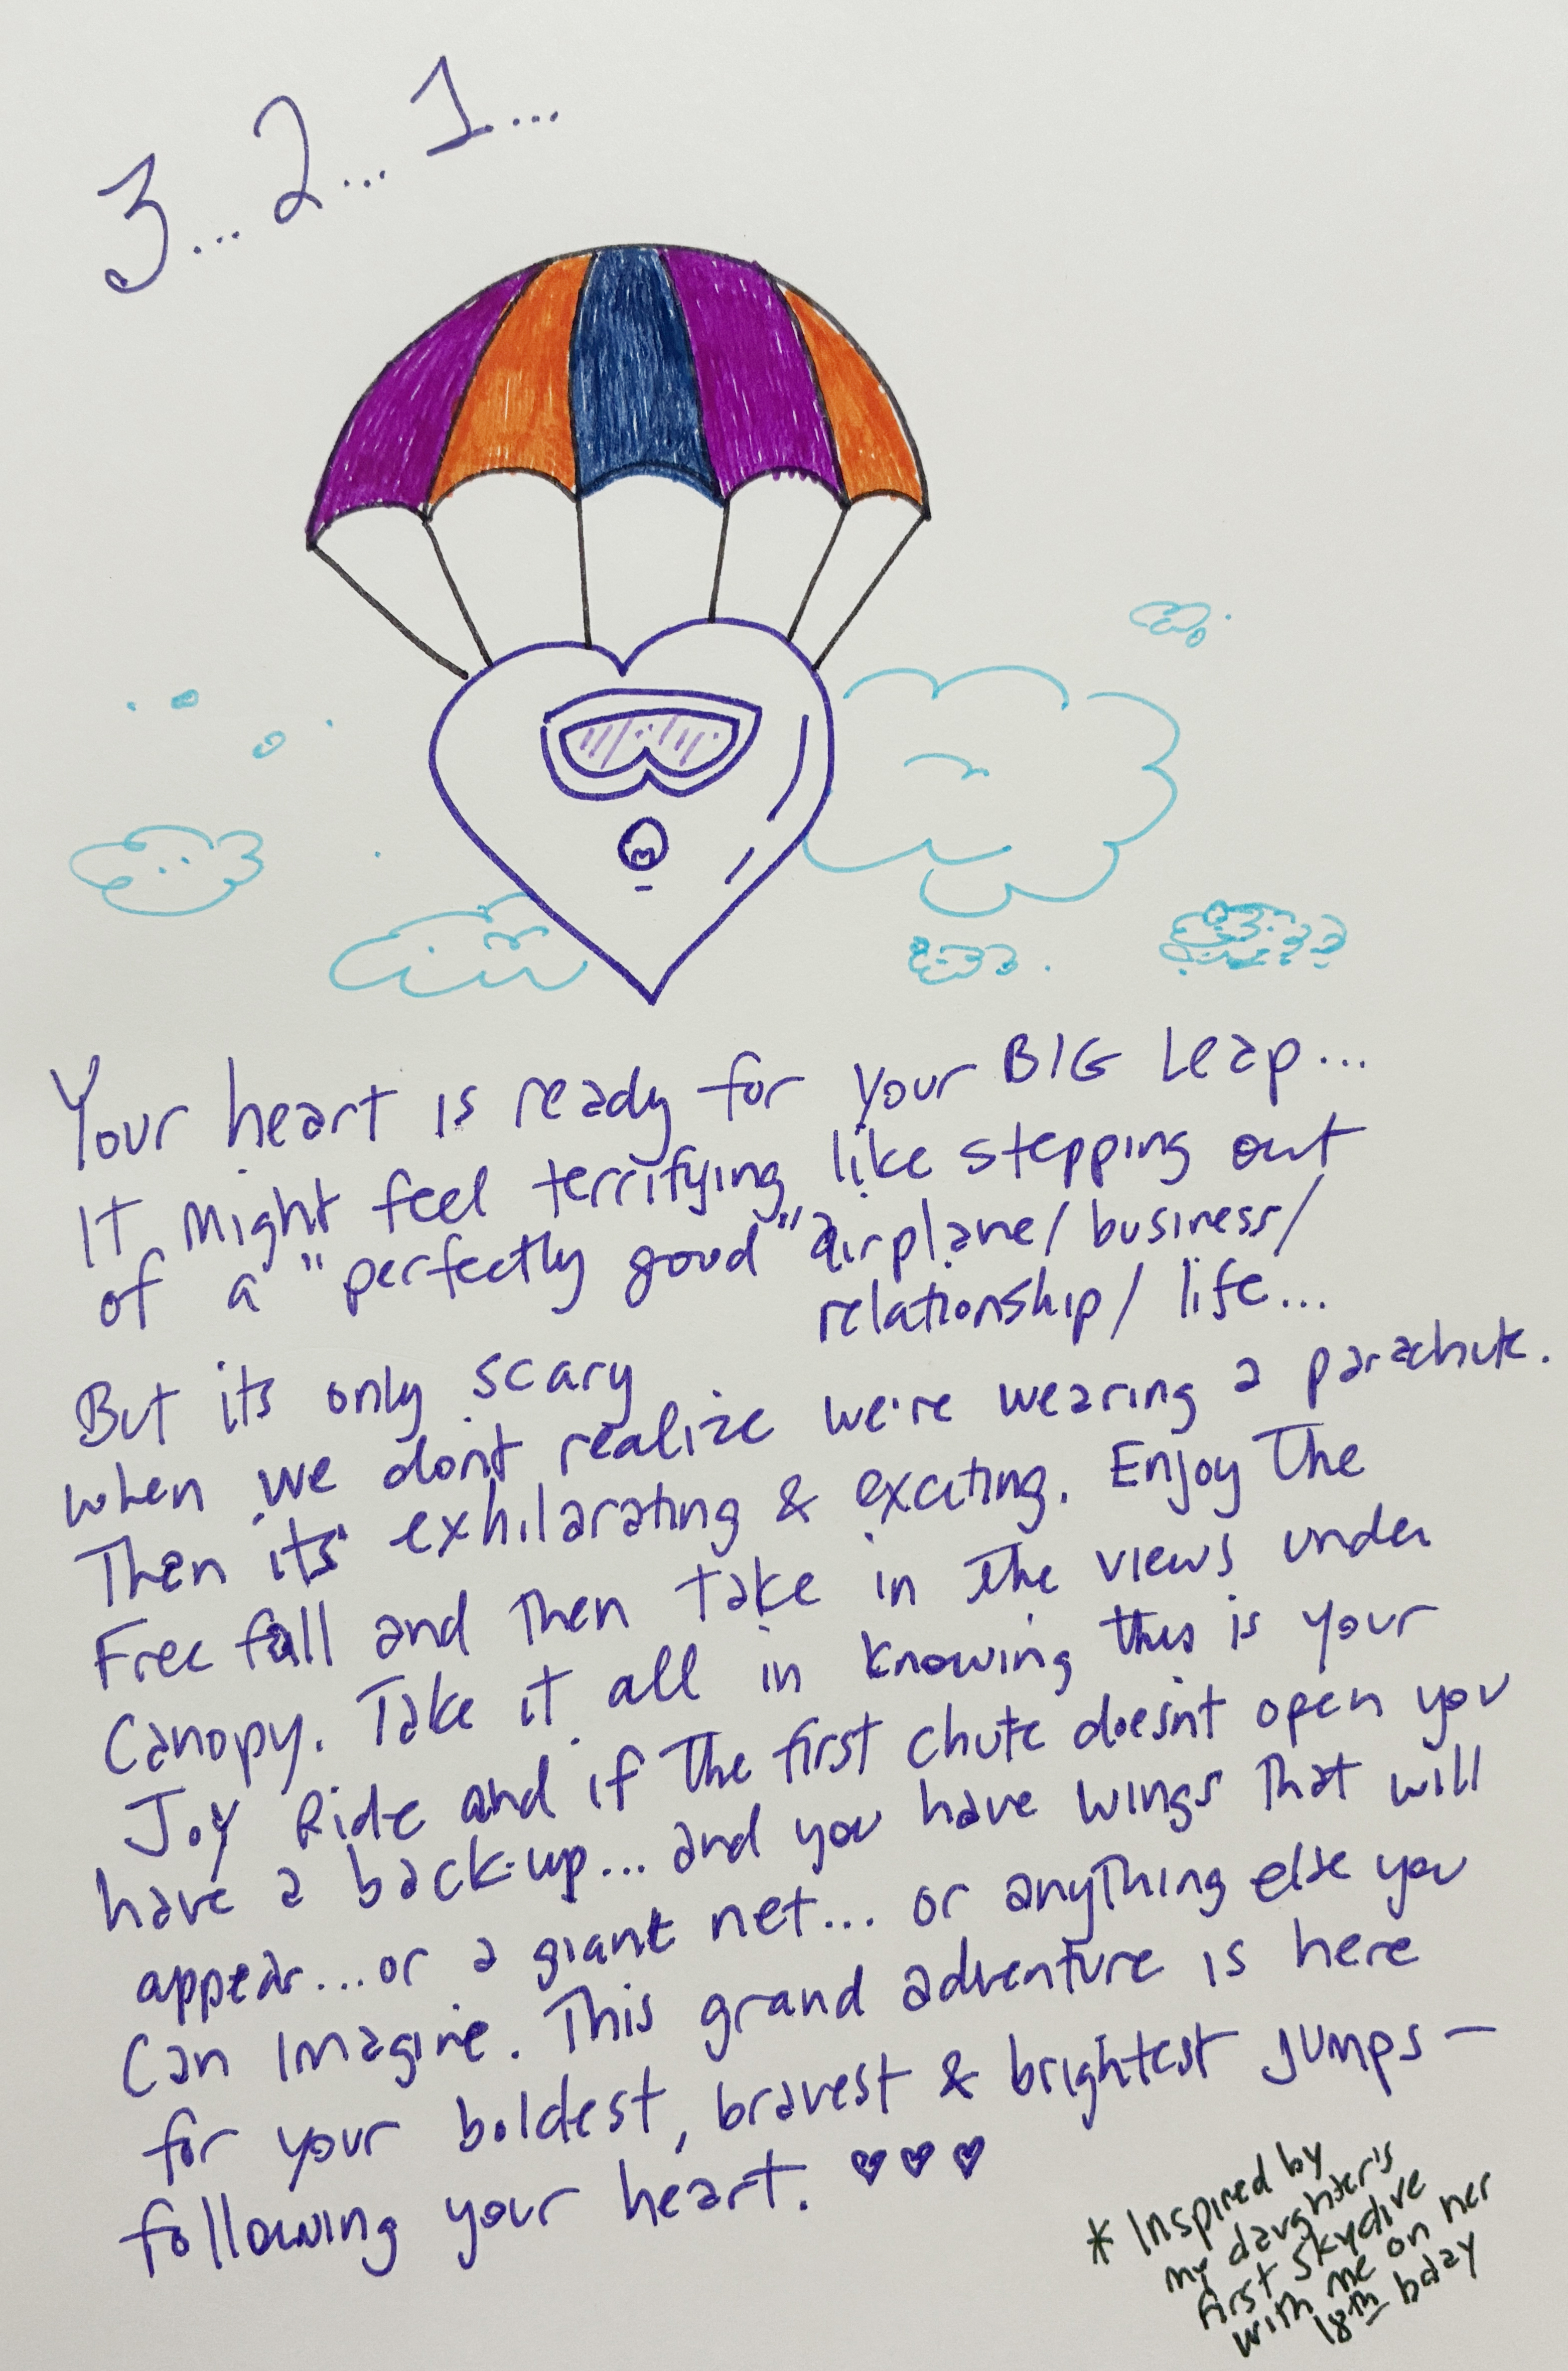 3... 2... 1...
Your heart is ready for your BIG Leap...
It might feel terrifying like stepping out
of a "perfectly good" airplane/business/
relationship/life...
But its only scary
when we dont realize we're wearing a parachute.
Then its exhilarating & exciting. Enjoy The
Free fall and Then take in the views under
Canopy. Take it all in knowing this is your
Joy Ride and if The first chute doesn't open you
have a back-up... and you have wings That will
appear...or a giant net... or anything else you
Can Imagine. This grand adventure is here
for your boldest, bravest & brightest jumps—
following your heart. ♥♥♥
* Inspired by
my daughter's
first skydive
with me on her
18th bday